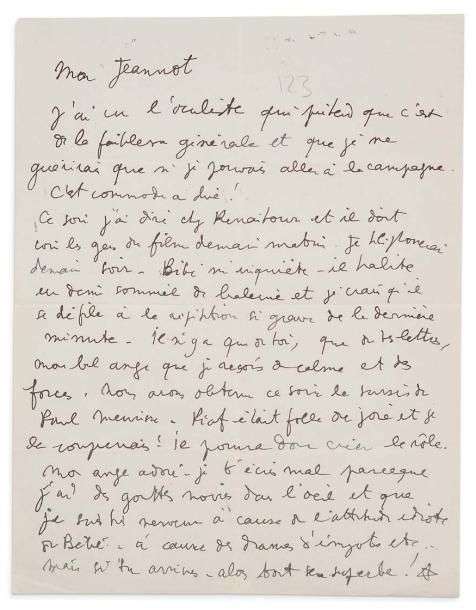 Mon Jeannot
123
J'ai vu l'oculiste qui prétend que c'est
de la faiblesse générale et que je ne
guérirai que si je pouvais aller à la campagne.
C'est commode a dire!
Ce soir j'ai diné chez Renaitour et il doit
voir les gens du film demain matin. Je téléphonerai
demain soir - Bébé m'inquiète - il halète
en demi sommeil de baleine et je crains qu'il
se défile à la répétition si grave de la dernière
minute - Il n'y a que toi, que tes lettres,
mon bel ange que je reçois de calme et des
forces. Nous avons obtenu ce soir le sursis de
Paul Meurisse - Piaf était folle de joie et je
le comprenais! Il pourra donc créer le rôle.
Mon ange adoré - je t'écris mal parceque
j'ai des gouttes noires dans l'oeil et que
je suis très nerveux à cause de l'attitude idiote
de Bébé - à cause des drames d'impots etc..
Mais si tu arrives - alors tout sera superbe!